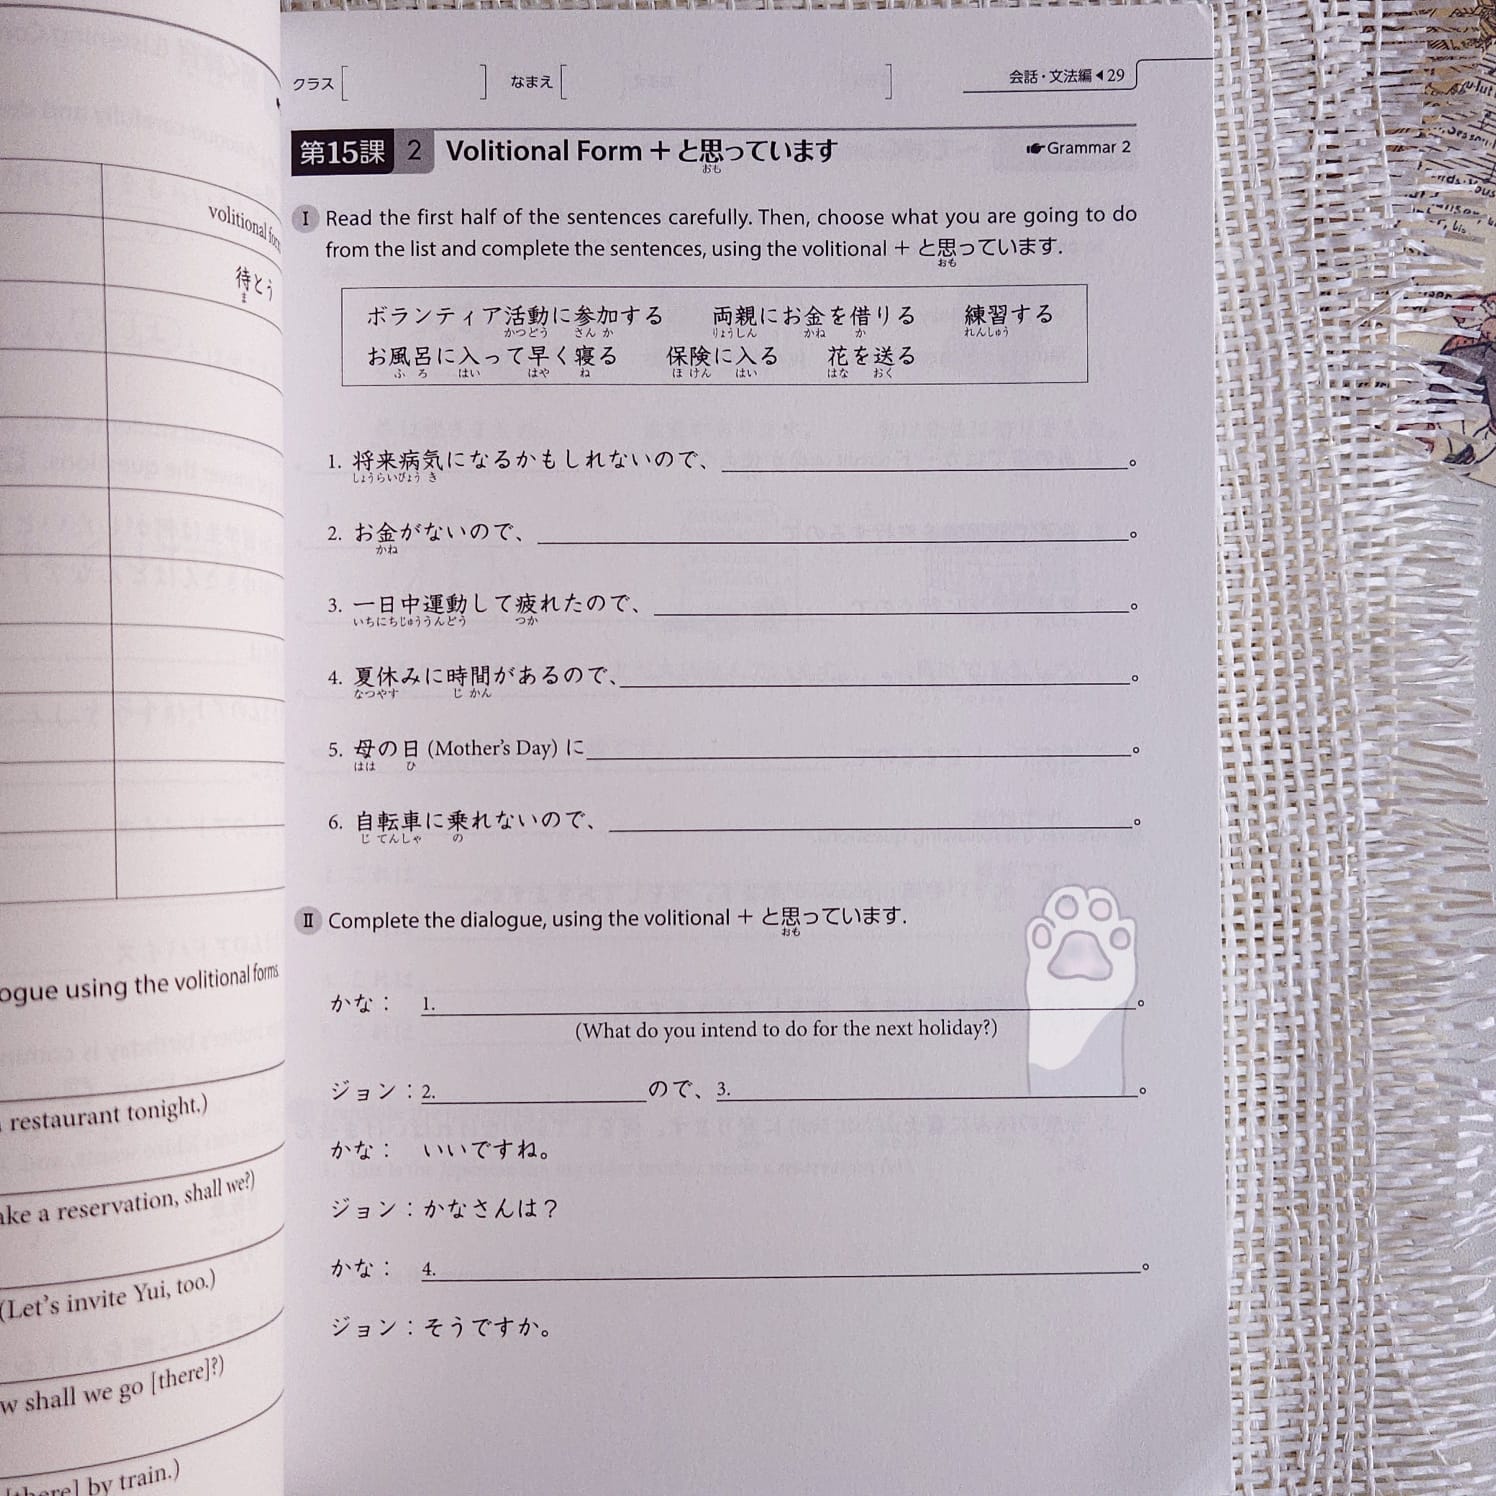 volitional
待とう
ま
ogue using the volitional forms
restaurant tonight.)
ake a reservation, shall we?)
(Let's invite Yui, too.)
w shall we go [there]?)
[there] by train.)
クラス[ ] なまえ[ ] 会話・文法編◀29
第15課 2 Volitional Form＋と思っています ☛Grammar 2
おも
Ⅰ Read the first half of the sentences carefully. Then, choose what you are going to do
from the list and complete the sentences, using the volitional＋と思っています.
おも
ボランティア活動に参加する 両親にお金を借りる 練習する
かつどう さん か りょうしん かね か れんしゅう
お風呂に入って早く寝る 保険に入る 花を送る
ふ ろ はい はや ね ほ けん はい はな おく
1. 将来病気になるかもしれないので、。
しょうらいびょう き
2. お金がないので、。
かね
3. 一日中運動して疲れたので、。
いちにちじゅううんどう つか
4. 夏休みに時間があるので、。
なつやす じ かん
5. 母の日 (Mother's Day) に。
はは ひ
6. 自転車に乗れないので、。
じ てんしゃ の
Ⅱ Complete the dialogue, using the volitional＋と思っています.
おも
かな： 1. 。
(What do you intend to do for the next holiday?)
ジョン：2. ので、3. 。
かな： いいですね。
ジョン：かなさんは？
かな： 4. 。
ジョン：そうですか。